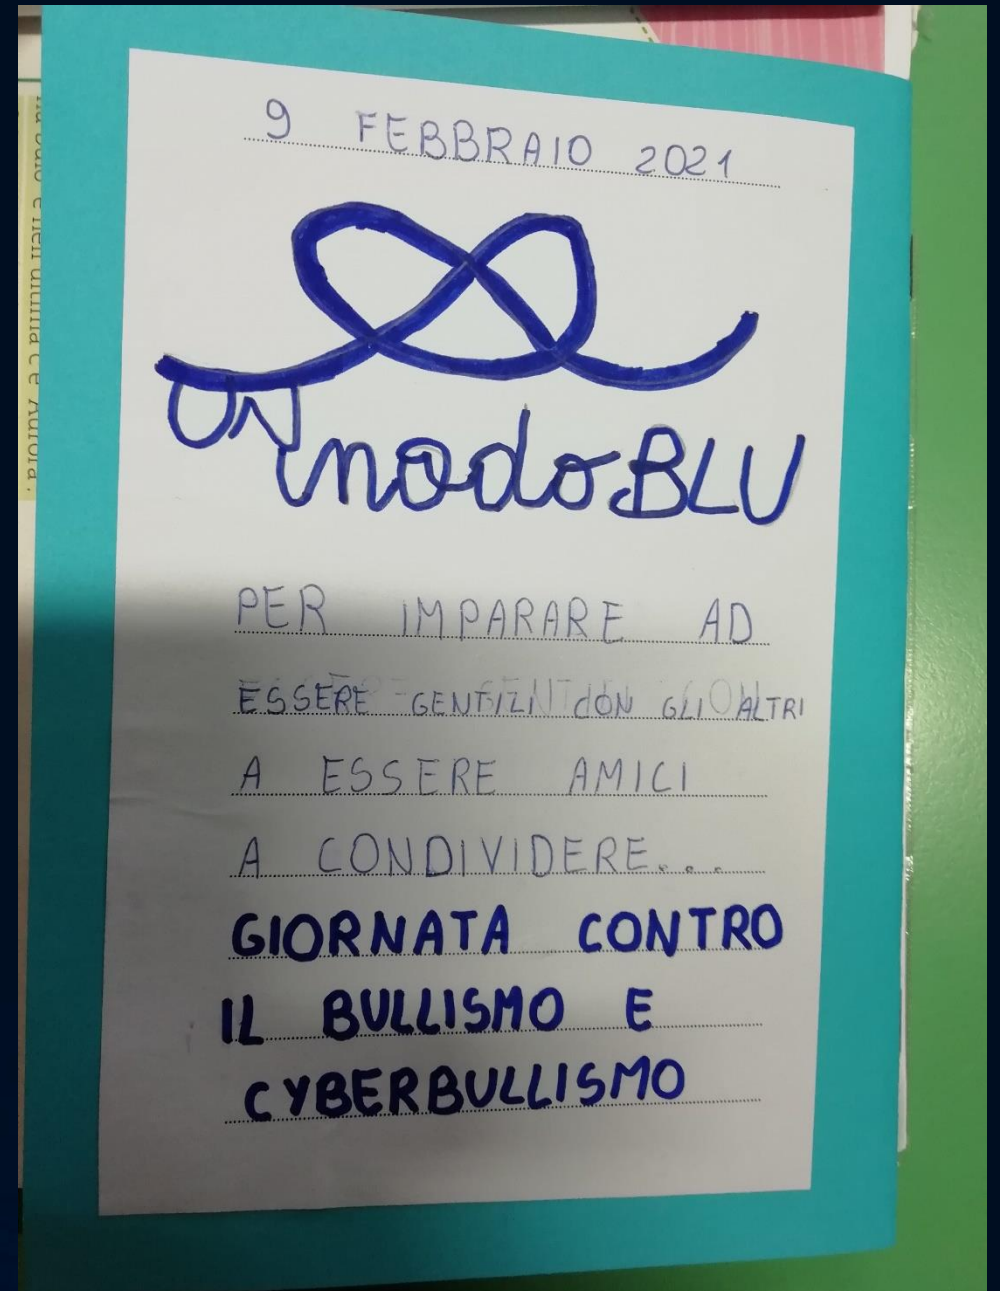 9 FEBBRAIO 2021
UN
nodoBLU
PER IMPARARE AD
ESSERE GENTILI CON GLI ALTRI
A ESSERE AMICI
A CONDIVIDERE...
GIORNATA CONTRO
IL BULLISMO E
CYBERBULLISMO
e nell'ultima c'è Aurora.